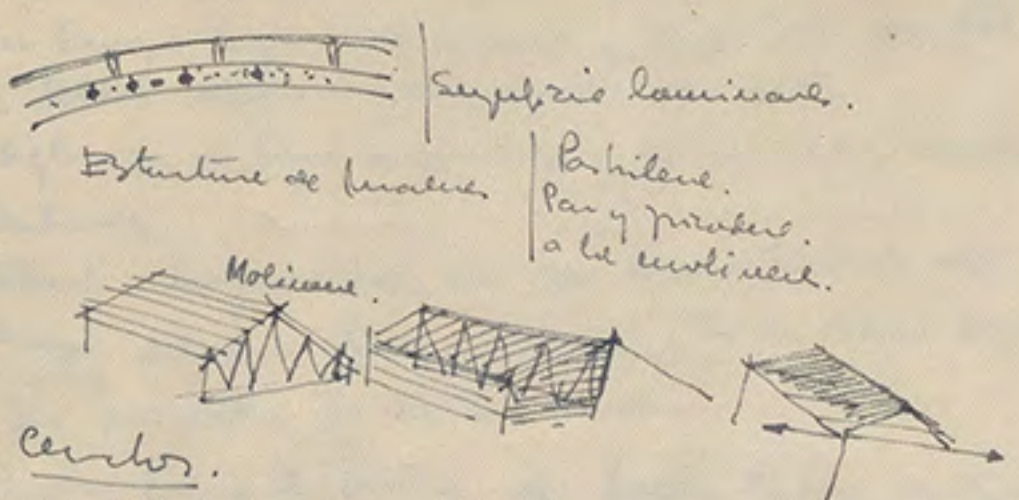 Superficie laminares.
Estructura de madera
Parhilera.
Par y picadero.
a la molinera.
Molinera.
Cerchas.